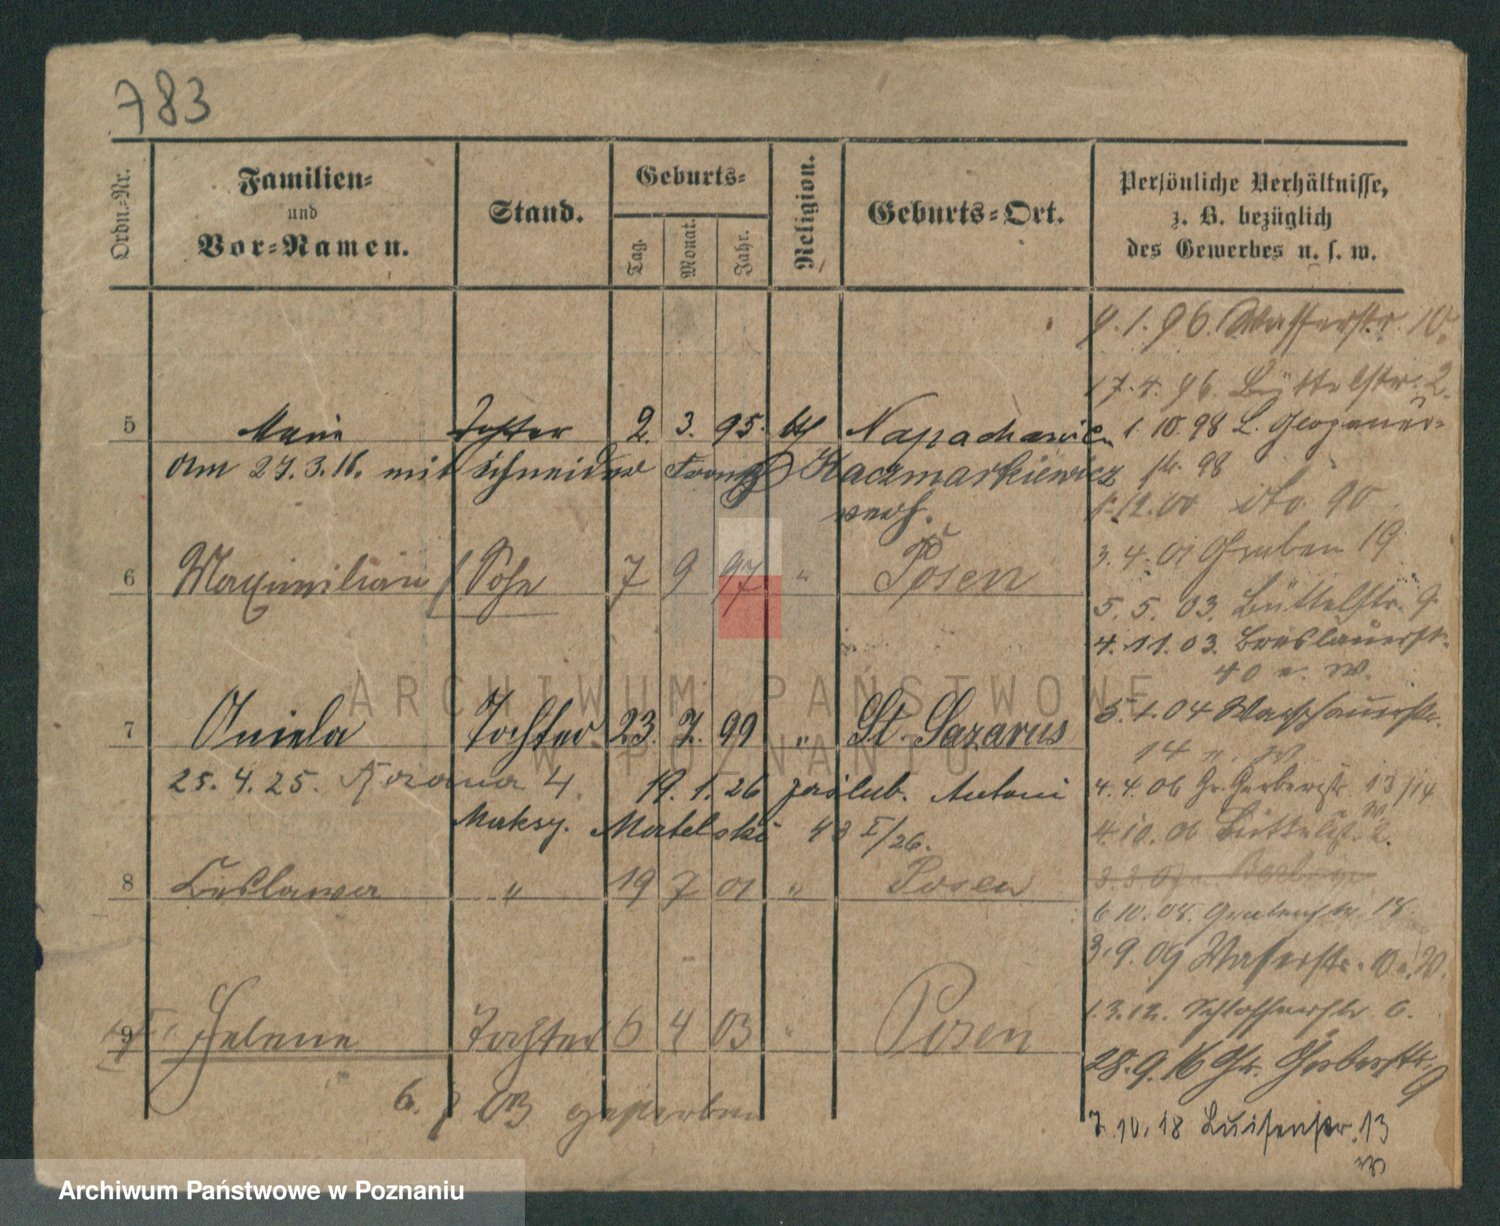 783
Ordn.-Nr.
Familien-
und
Vor-Namen.
Stand.
Geburts-
Tag.
Monat.
Jahr.
Religion.
Geburts-Ort.
Persönliche Verhältnisse,
z. B. bezüglich
des Gewerbes u. s. w.
9.1.96. Wasserstr. 10.
17.4.96. Büttelstr. 2.
5 Marie Tochter 2. 3. 95. Napachanie 1.10.98 Glogauer-
am 27.3.16. mit Schneider Franz Kaczmarkiewicz str. 98
verh. 1.12.00 dto. 90
3.4.01 Graben 19
6 Maximilian Sohn 7 9 97 " Posen
5.5.03. Büttelstr. 9
4.11.03. Breslauerstr.
40 n. W.
7 Aniela Tochter 23. 7. 99 " St. Lazarus 5.1.04 Warschauerstr.
14 n. W.
25.4.25. 4. 19.1.26 zaślub. Antoni 4.4.06 Gr. Gerberstr. 13/14
Maksy. Matelski 43 I/26. 4.10.06 Büttelstr. 2.
8 Ceslawa " 19 7 01 " Posen
6.10.08. Grabenstr. 18
3.9.09 Wasserstr.
1.3.12. Schlosserstr. 6.
9 Helene Tochter 6 4 03 " Posen
28.9.16 Gr. Gerberstr. 9
6. 7 03 gestorben
7.10.18 Luisenstr. 13
ARCHIWUM PAŃSTWOWE
W POZNANIU
Archiwum Państwowe w Poznaniu